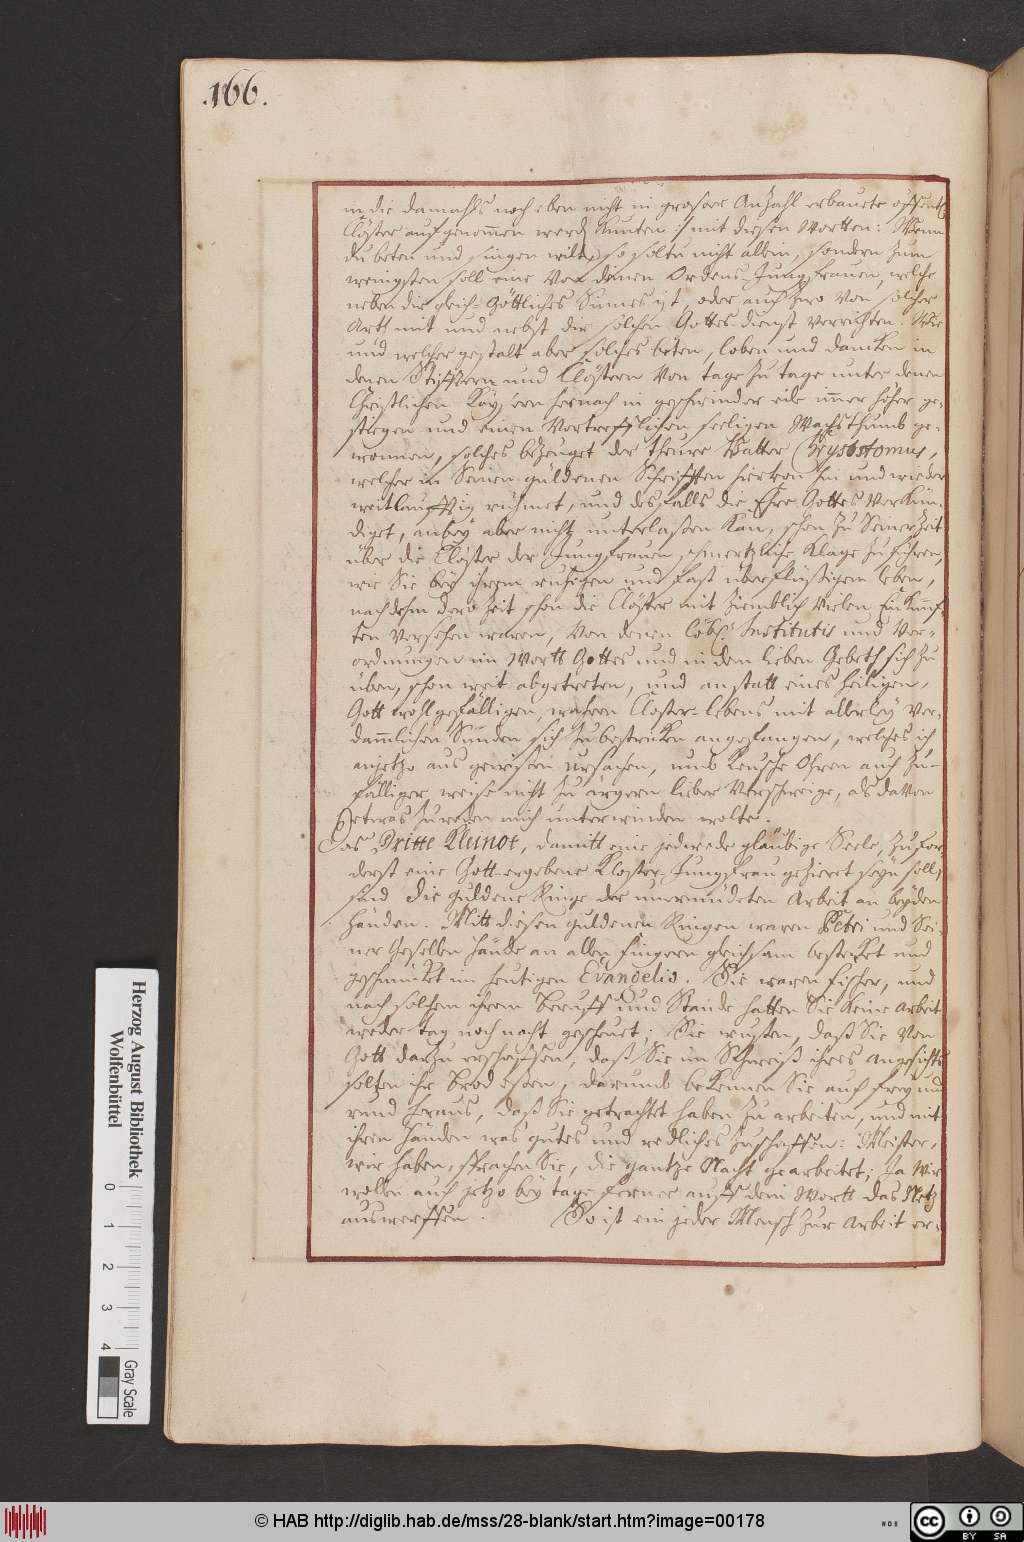 .166.
in die damahls noch eben nicht in grosser Anzahl erbauete öffentl.
Clöster aufgenommen werd. kunten :/ mit diesen Wortten: Wenn
du beten und singen wilt, so soltu nicht allein, sondern zum
wenigsten soll eine von deinen Ordens-Jungfrauen, welche
neben dir gleich-Göttliches Sinnes ist, oder auch zwo von solcher
Arth mit und nebst dir solchen Gottes-dienst verrichten. Wie
und welcher gestalt aber solches beten, loben und dancken in
denen Stifftern und Clöstern von tage zu tage unter denen
Christlichen Käysern hernach in geschwinder eile immer höher ge-
stiegen und einen vortrefflichen seeligen Wachsthumb ge-
wonnen, solches bezeuget der theure Vatter Chrysostomus,
welcher in Seinen güldenen Schrifften hiervon hin und wieder
weitläufftig rühmet, und desfalls die Ehre Gottes verkün-
diget, anbey aber nicht unterlaßen kan, schon zu Seiner Zeit
über die Clöster der Jungfrauen schmertzliche Klage zu führen,
wie Sie bey ihrem ruhigen und fast überflüßigem leben,
nachdehm dero Zeit schon die Clöster mit ziemblich vielen Einkünff-
ten versehen waren, von denen löbl. Institutis und Ver-
ordnungen im Wortt Gottes und in dem lieben Gebeth sich zu
üben, schon weit abgetreten, und anstatt eines heiligen,
Gott wohlgefälligen, wahren Closter-lebens mit allerley ver-
dammlichen Sünden sich zu bestricken angefangen, welches ich
anjetzo aus gewißen ursachen, umb keusche Ohren auch zu-
fälliger weise nicht zu ärgern lieber verschweige, als davon
etwas zu reden mich unterwinden wolte.
Das Dritte Klinot, damitt eine jedwede gläubige Seele, zufor-
derst eine Gott-ergebene Kloster-Jungfrau gezieret seyn soll,
sind die güldene Ringe der unermüdeten Arbeit an beyden
Händen. Mitt diesen güldenen Ringen waren Petri und Sei-
ner Gesellen Hände an allen fingern gleichsam bestecket und
geschmücket im heutigen Evangelio. Sie waren Fischer, und
nach solchem ihrem Beruff und Stande hatten Sie keine Arbeit
weder tag noch nacht gescheuet. Sie wusten, daß Sie von
Gott darzu erschaffen, daß Sie im Schweiß ihres Angesichts
solten ihr Brod eßen, darumb bekennen Sie auch frey und
rund heraus, daß Sie getrachtet haben zu arbeiten, und mit
ihren Händen was gutes und redliches zu schaffen: Meister,
wir haben, sprachen Sie, die gantze Nacht gearbeitet; Ja wir
wollen auch jetzo bey tage ferner auff dein Wortt das Netz
auswerffen. So ist ein jeder Mensch zur Arbeit er-
Herzog August Bibliothek
Wolfenbüttel
0 1 2 3 4
Gray Scale
© HAB http://diglib.hab.de/mss/28-blank/start.htm?image=00178
WDB
cc BY SA